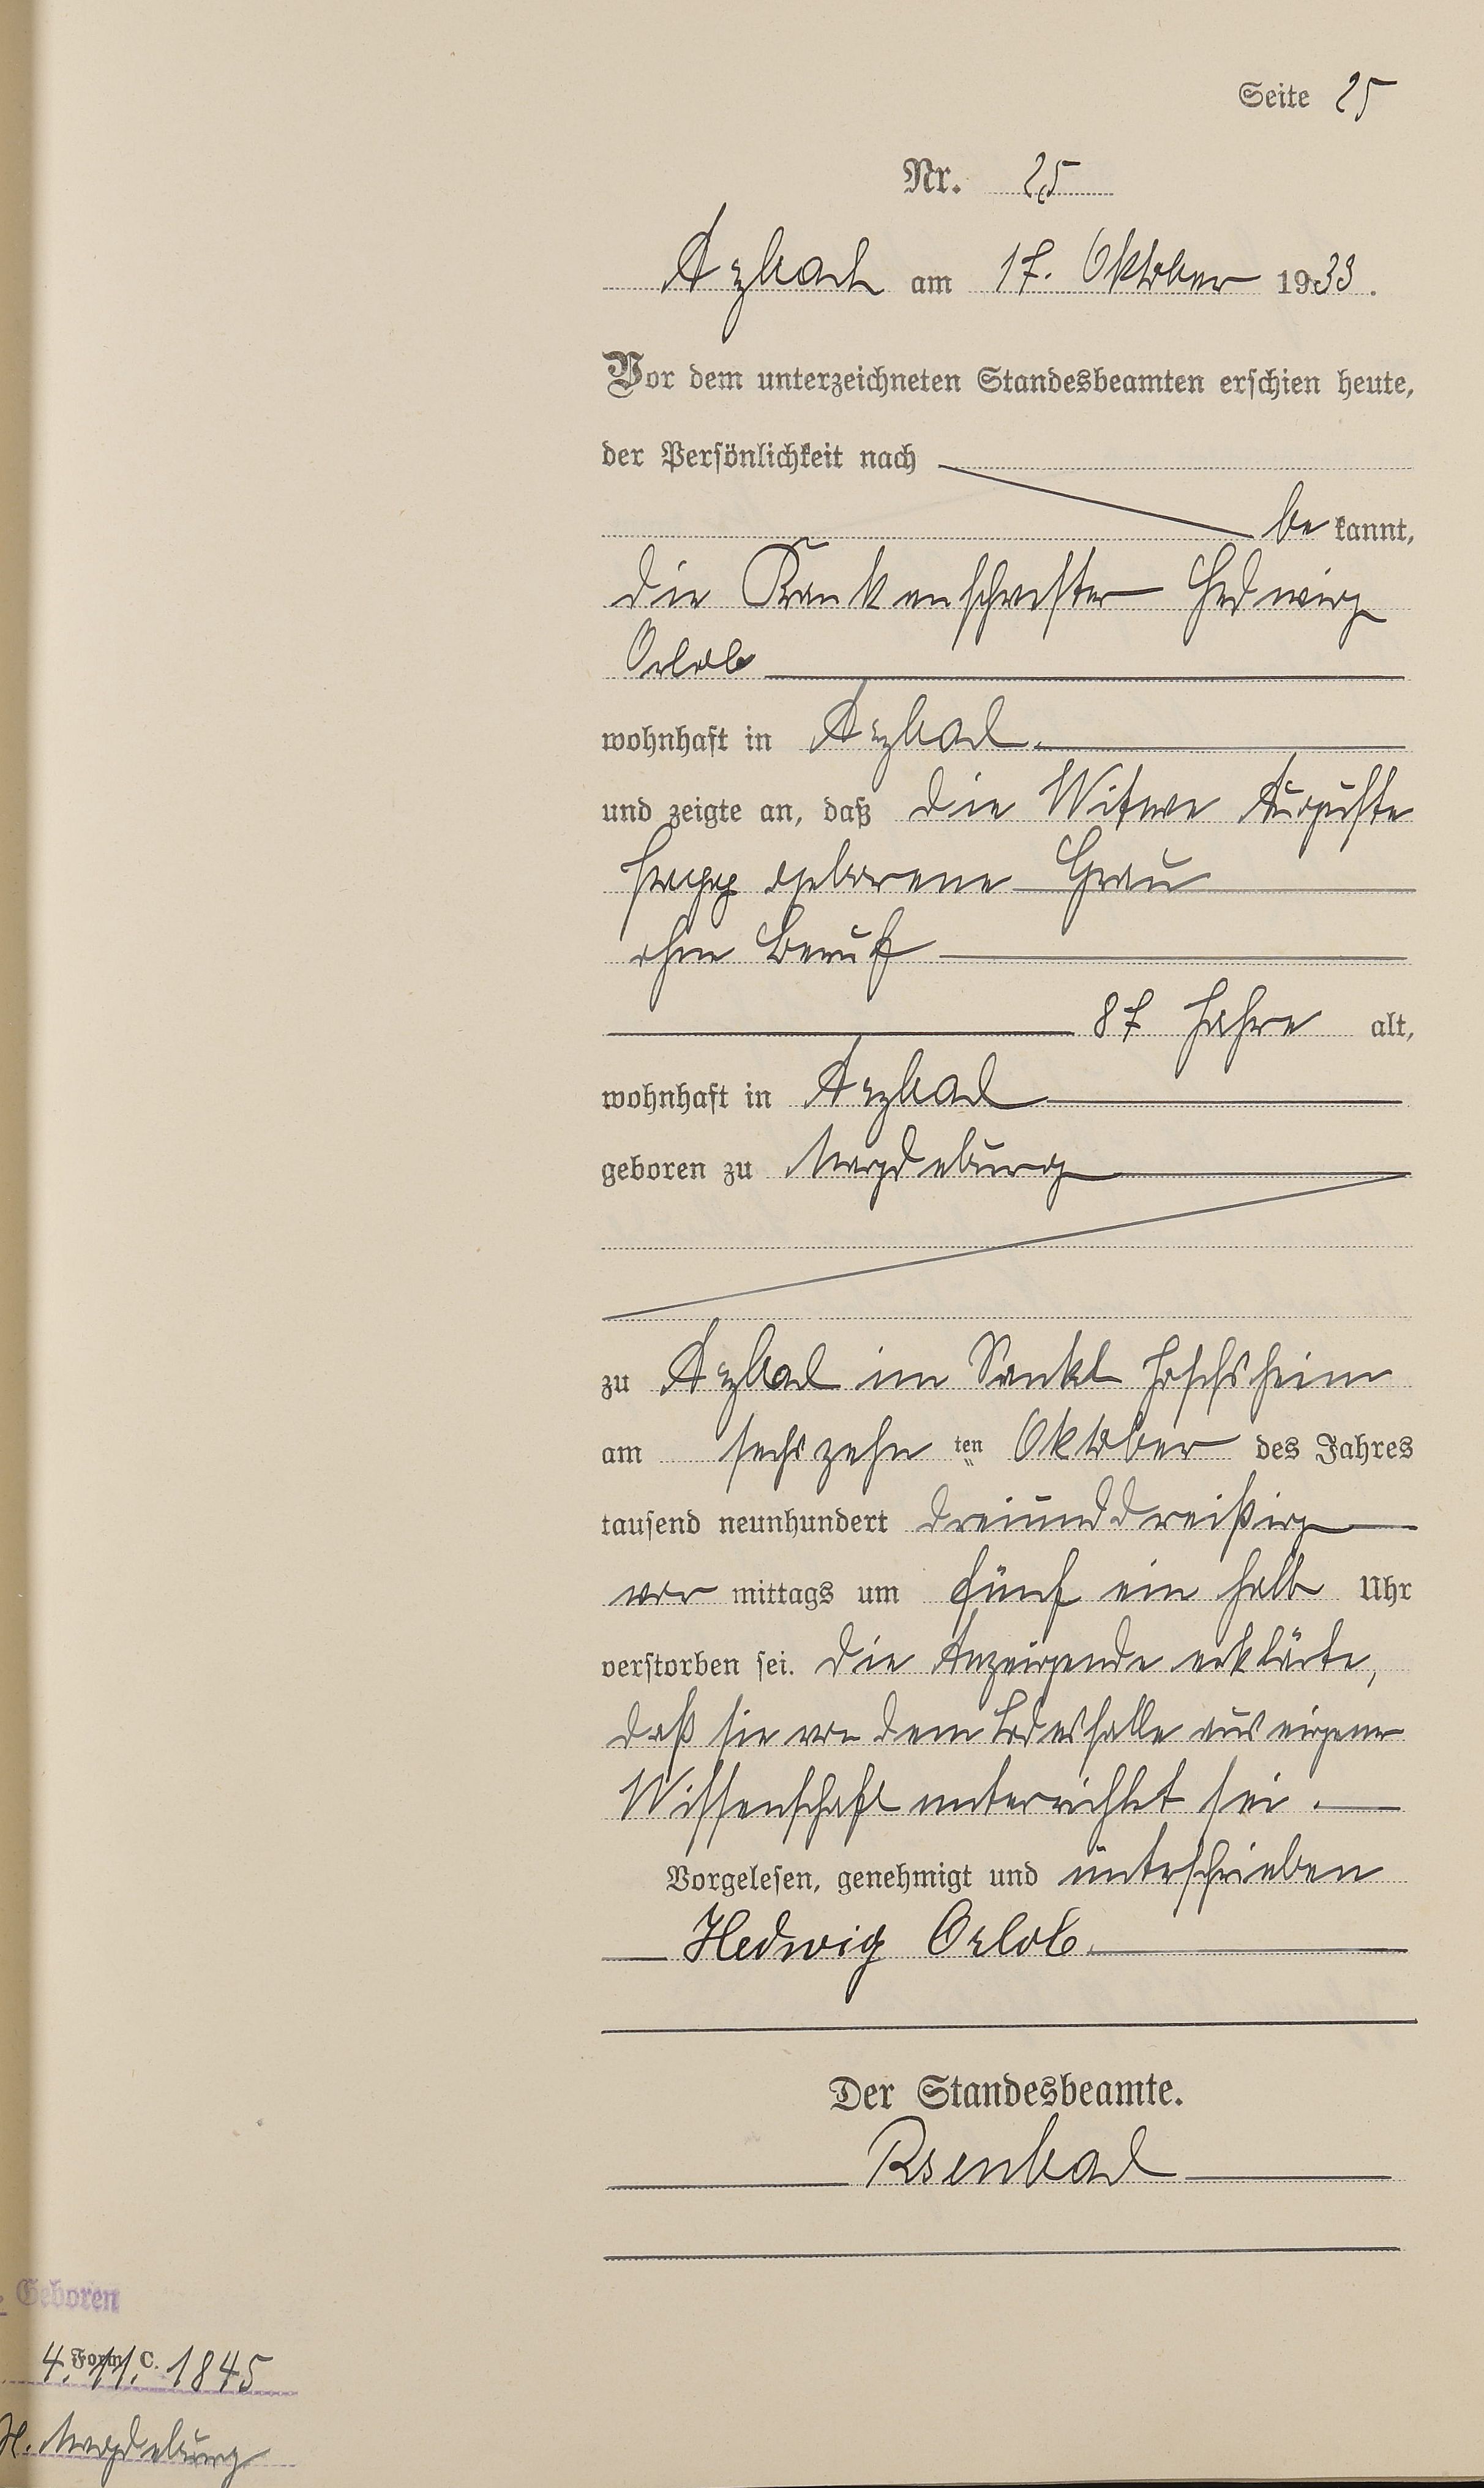 Seite 25
Nr. 25
Arzbach am 17. Oktober 1933.
Vor dem unterzeichneten Standesbeamten erschien heute,
der Persönlichkeit nach
be kannt,
die Krankenschwester Hedwig
Orlob
wohnhaft in Arzbach.
und zeigte an, daß die Witwe Auguste
geborene Grau
ohne Beruf
87 Jahre alt,
wohnhaft in Arzbach
geboren zu Magdeburg
zu Arzbach im Sankt Josefsheim
am sechszehn ten Oktober des Jahres
tausend neunhundert dreiunddreißig
vor mittags um fünf ein halb Uhr
verstorben sei. Die Anzeigende erklärte,
daß sie von dem Todesfalle aus eigener
Wissenschaft unterrichtet sei.
Vorgelesen, genehmigt und unterschrieben
Hedwig Orlob.
Der Standesbeamte.
Geboren
Form C.
4. 11. 1845
Magdeburg